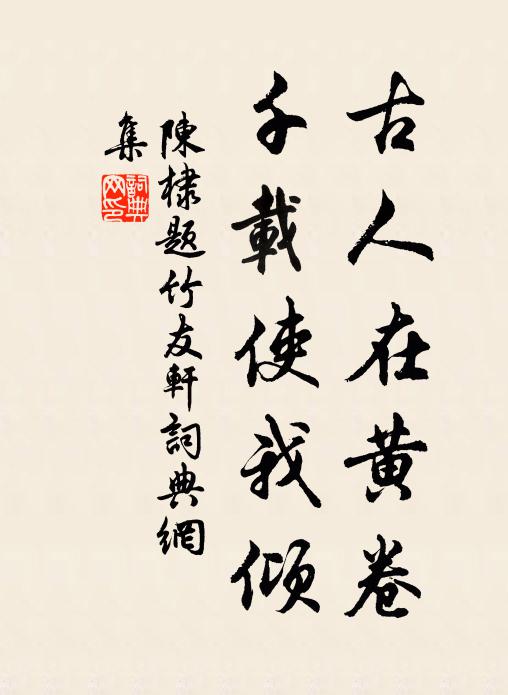 古人在黄卷
千載使我倾
陳棣题竹友軒詞典網
集
詞典
网印